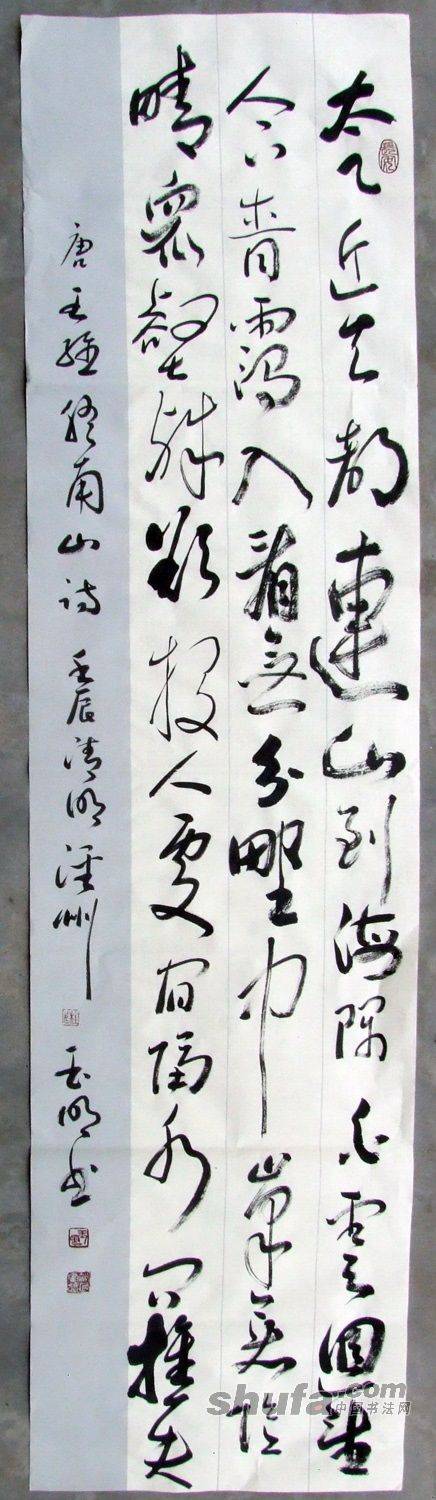 太乙近天都連山到海隅白雲迴望
合青靄入看無分野中峯變陰
晴眾壑殊欲投人處宿隔水問樵夫
唐王維終南山詩 壬辰清明 州 玉明书
shufa.com
中国书法网